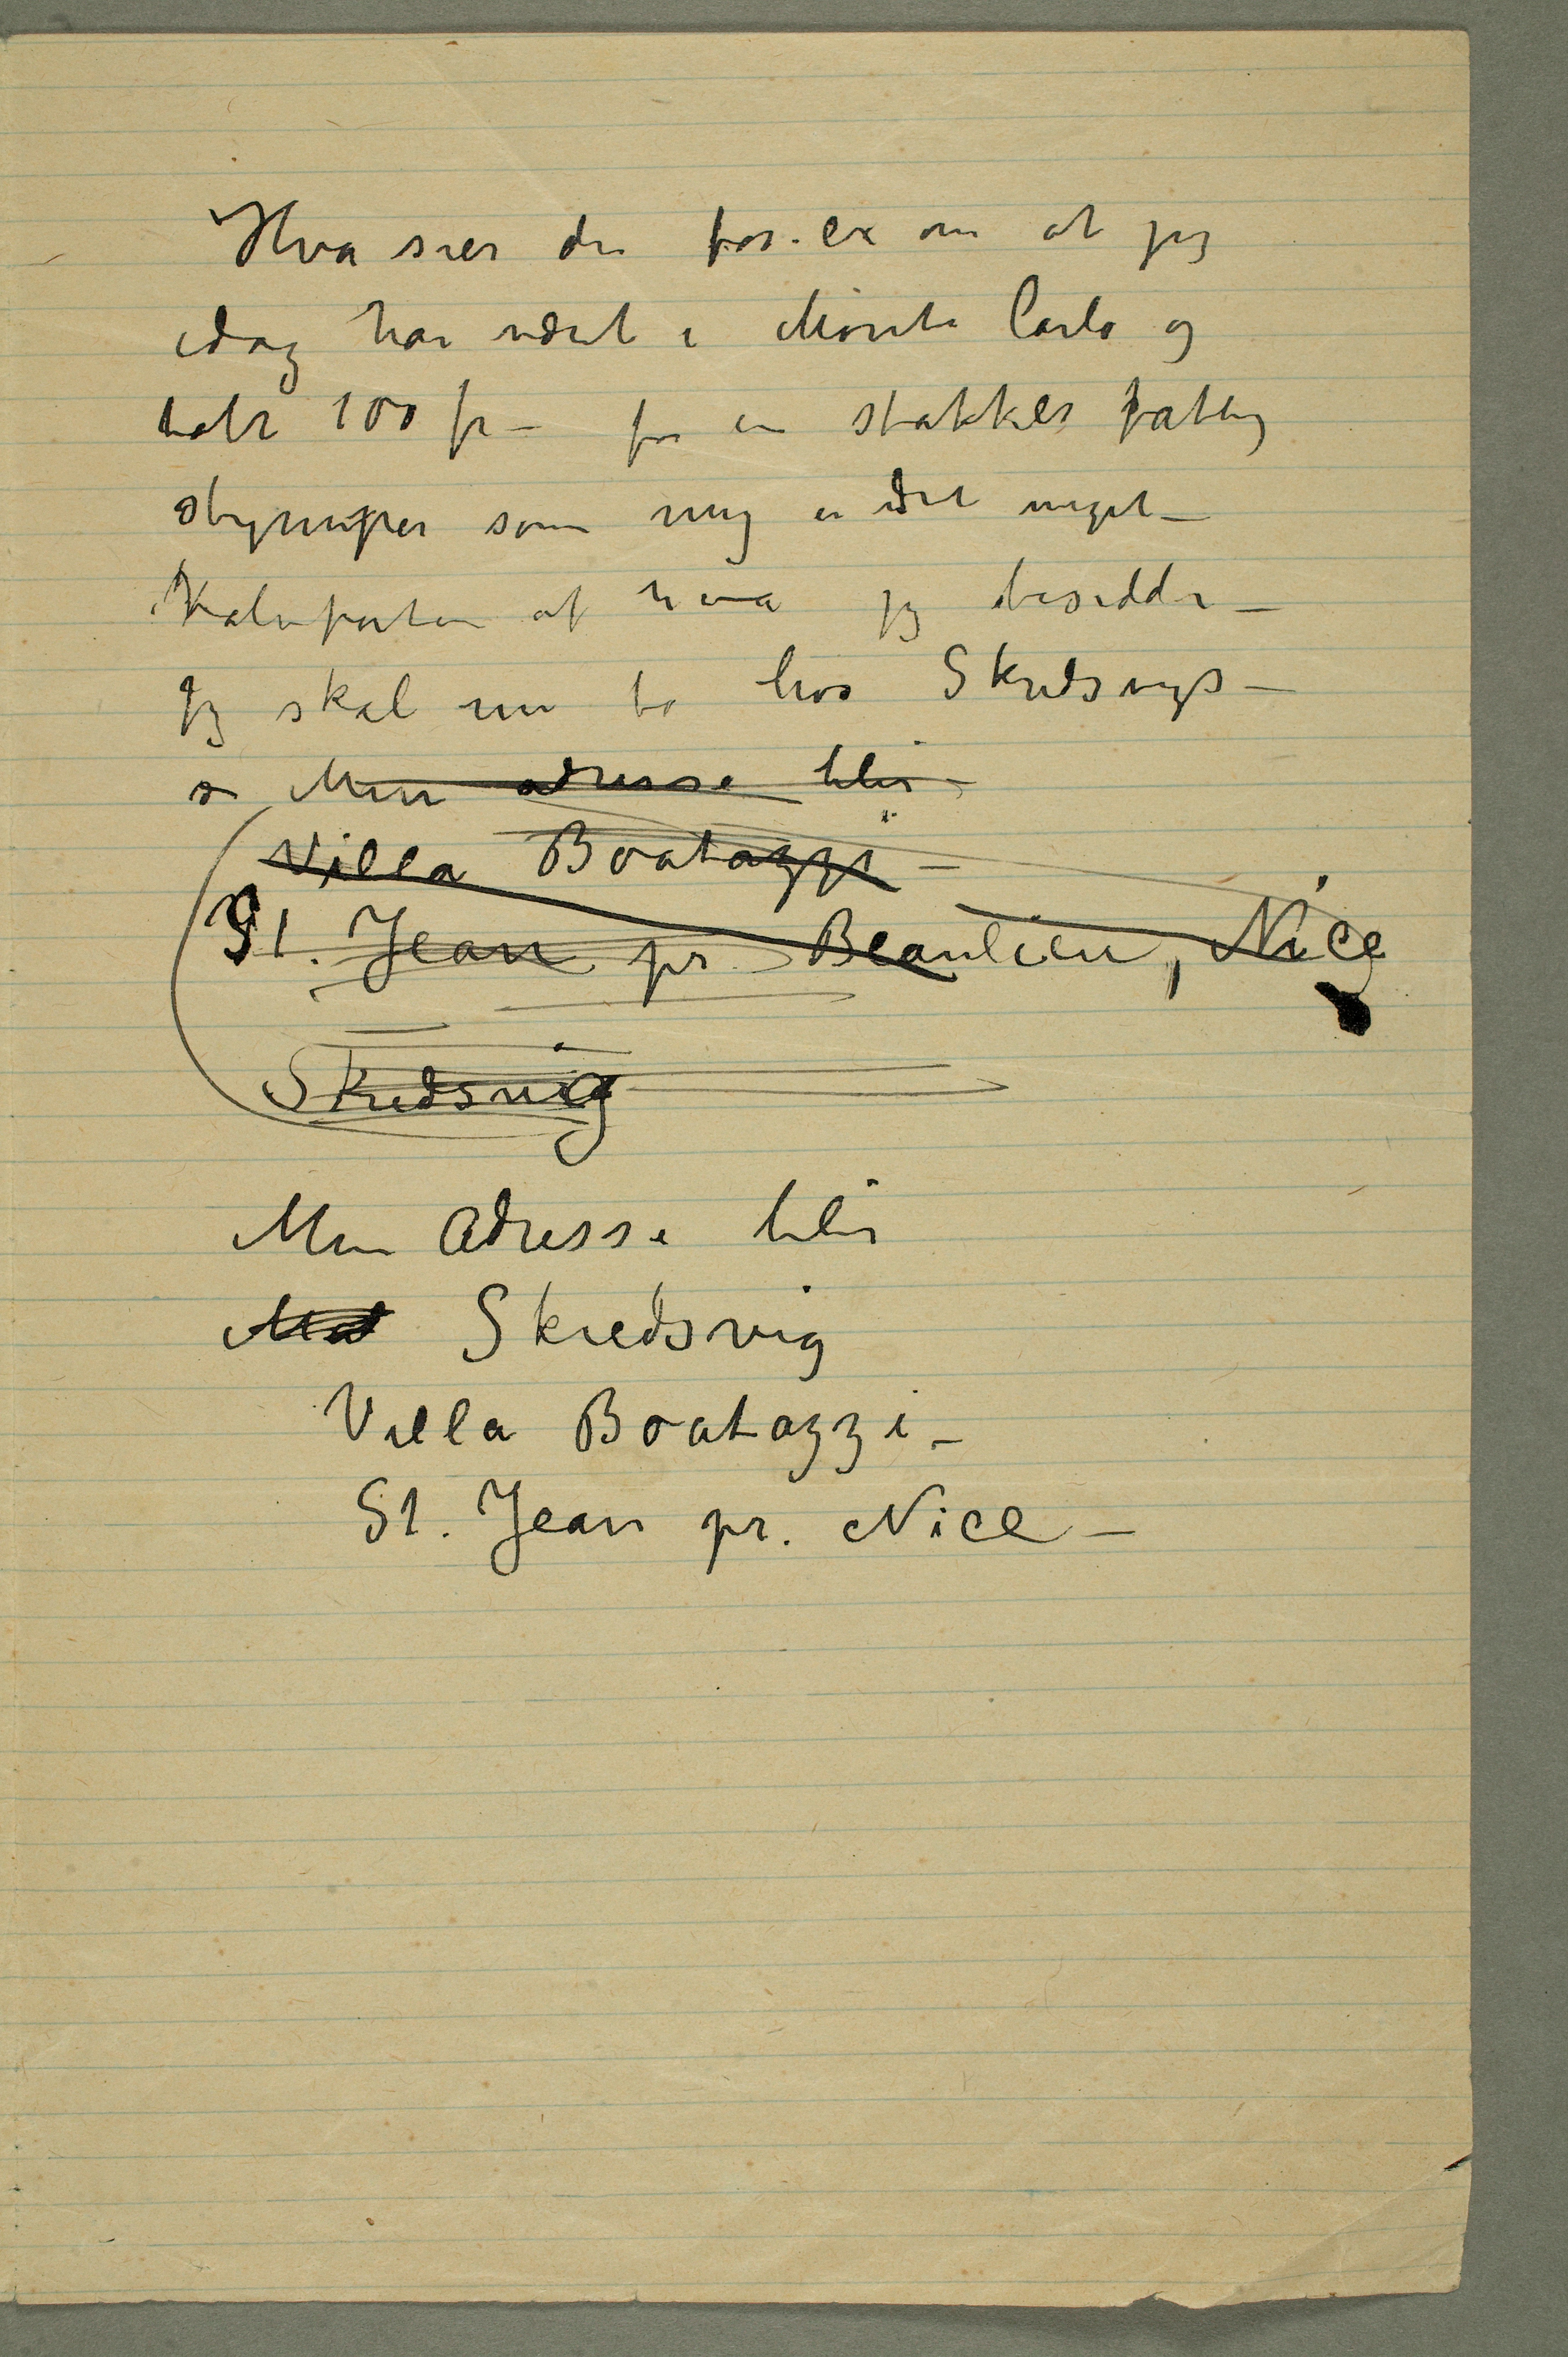 Hva sier du for. ex om at jeg
idag har været i Monte Carlo og
tabt 100 fr – for en stakkels fattig
stymper som mig er det meget –
Halvparten af hva jeg besidder –
Jeg skal nu bo hos Skredsvigs –
så Min adresse blir –
Villa Boatazzi –
St. Jean pr. Beaulieu, Nice
Skredsvig
Min Adresse blir
Skredsvig
Villa Boatazzi –
St. Jean pr. Nice –